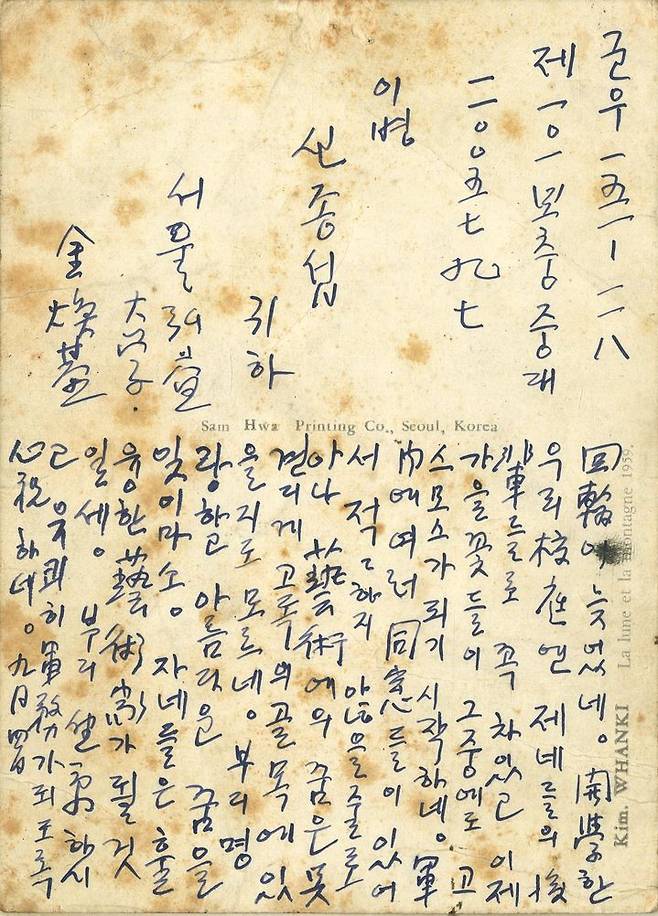 군우 一五一-二八
제一〇一보충중대
二〇〇五七九七
이병
신종섭
귀하
서울弘益
大学.
金煥基
Sam Hwa Printing Co., Seoul, Korea
回翰이 늦었네。 開學한
우리 校庭엔 제네들의 後
輩들로 꼭 차있고 이제
가을꽃들이 그중에도 고
스모스가 피기 시작하네。 軍
內에 여러 同窓들이 있어
서 적적하지 않을줄로
아나 藝術에의 꿈은 못
견디게 고독의 골목에 있
을지도 모르네。 부디 명
랑하고 아름다운 꿈을
잊이마소。 자네들은 훌
륭한 藝術家가 될것
일세。 부디 하시
고 유쾌히 軍務가 되도록
心祝하네。 九月四日
Kim. WHANKI La lune et la montagne 1959.